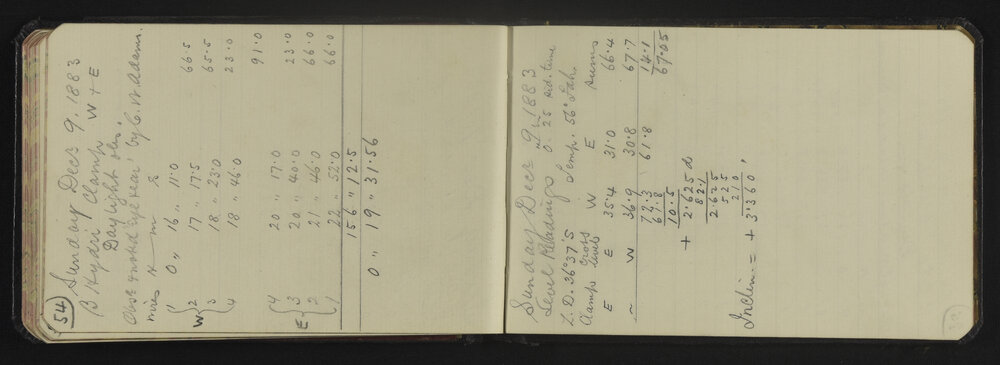 54
Sunday Dec 9. 1883
β Hydri Clamp W + E
Daylight obs.
Obs. & notd. 'Eye & ear' by C. W. Adams.
wires h m s
W { 1 0 " 16 " 11.0
2 17 " 17.5 66.5
3 18 " 23.0 65.5
4 18 " 46.0 23.0
91.0
E { 4 20 " 17.0 23.0
3 20 " 40.0 66.0
2 21 " 46.0 66.0
1 22 " 52.0
156 " 12.5
0 " 19 " 31.56
Sunday Dec 9 1883
Level Readings 0 25 sid. time
Z. D. 36° 37' S Temp. 56° Fah.
Clamps cross level W E sums
E E 35.4 31.0 66.4
~ W 36.9 30.8 67.7
72.3 61.8 14.1
61.8 67.05
10.5
+ 2.625 d
82.1
2625
525
210
Inclin. = + 3.360 "